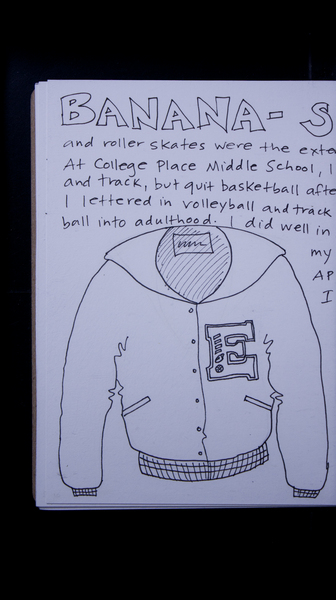 BANANA- S
and roller skates were the exte
At College Place Middle School, I
and track, but quit basketball afte
I lettered in volleyball and track
ball into adulthood. I did well in
my
AP
I
E